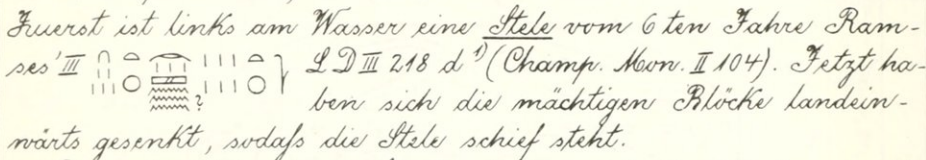 Zuerst ist links am Wasser eine Stele vom 6 ten Jahre Ram-
ses' III L D III 218 d ¹) (Champ. Mon. II 104). Jetzt ha-
ben sich die mächtigen Blöcke landein-
wärts gesenkt, sodaſs die Stele schief steht.